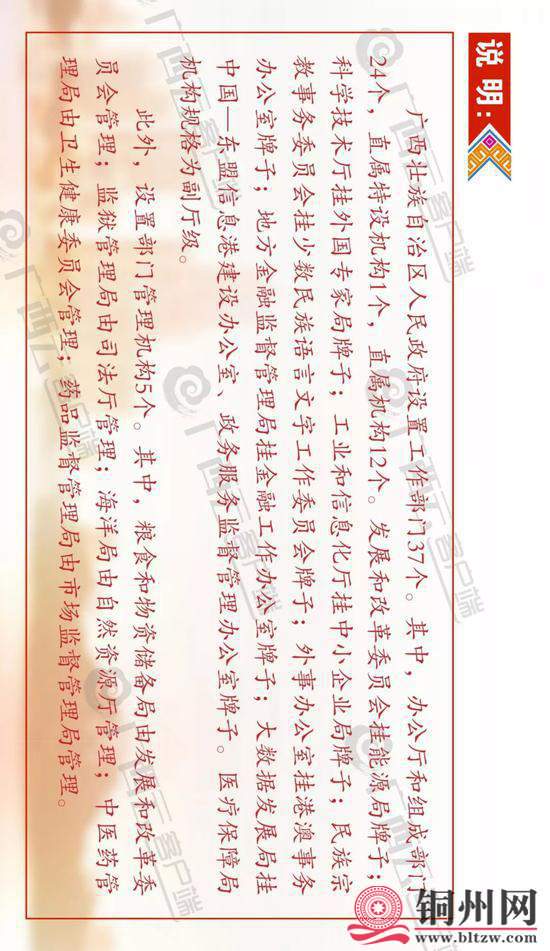 说明：
广西壮族自治区人民政府设置工作部门37个。其中，办公厅和组成部门
24个，直属特设机构1个，直属机构12个。发展和改革委员会挂能源局牌子；
科学技术厅挂外国专家局牌子；工业和信息化厅挂中小企业局牌子；民族宗
教事务委员会挂少数民族语言文字工作委员会牌子；外事办公室挂港澳事务
办公室牌子；地方金融监督管理局挂金融工作办公室牌子；大数据发展局挂
中国—东盟信息港建设办公室、政务服务监督管理办公室牌子。医疗保障局
机构规格为副厅级。
此外，设置部门管理机构5个。其中，粮食和物资储备局由发展和改革委
员会管理；监狱管理局由司法厅管理；海洋局由自然资源厅管理；中医药管
理局由卫生健康委员会管理；药品监督管理局由市场监督管理局管理。
广西云客户端
广西云客户端
广西云客户端
广西云客户端
广西云客户端
广西云客户端
铜州网
www.bltzw.com